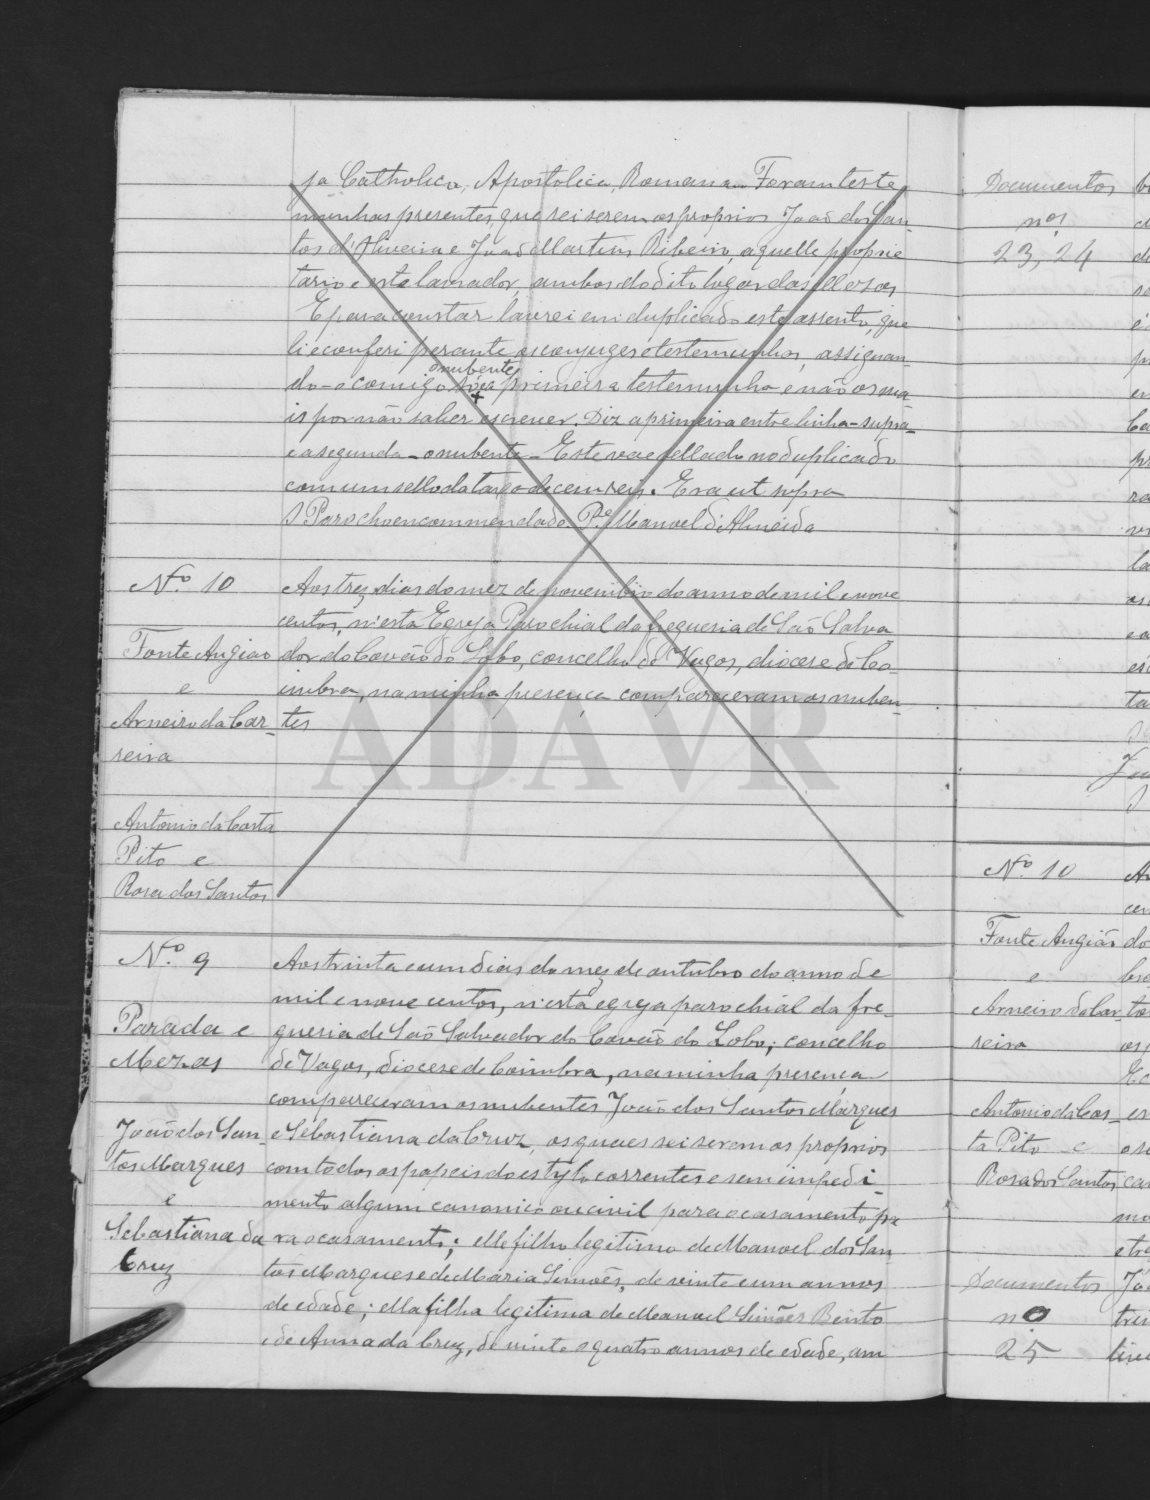 ja Catholica, Apostolica, Romana. Foram teste
munhas presentes, que sei serem os proprios João dos San-
tos d'Oliveira e João Martins Ribeiro, aquelle proprie
tario e este lavrador, ambos do dito logar das Mezas
E para constar lavrei em duplicado este assento, que
li e conferi perante os conjuges e testemunhas, assignan-
o nubente
do-o comigo só a primeira testemunha e não os ma
is por não saber escrever. Diz a primeira entrelinha-supra-
e a segunda-o nubente-Este vae sellado no duplicado
com um sello da taxa de cem reis. Era ut supra
O Parocho encommendado P.e Manoel d'Almeida
N.º 10
Fonte Angião
e
Arneiro da Car-
reira
Antonio da Costa
Pito e
Rosa dos Santos
Aos trez dias do mez de novembro do anno de mil e nove
centos, n'esta Egreja Parochial da freguesia de São Salva
dor do Covão do Lobo, concelho de Vagos, diocese de Co-
imbra, na minha presença compareceram os nuben-
tes
N.º 9
Parada e
Mezas
João dos San-
tos Marques
e
Sebastiana da
Cruz
Aos trinta e um dias do mez de outubro do anno de
mil e nove centos, n'esta egreja parochial da fre-
guesia de São Salvador do Covão do Lobo, concelho
de Vagos, diocese de Coimbra, na minha presença
compareceram os nubentes João dos Santos Marques
e Sebastiana da Cruz, os quaes sei serem os proprios
com todos os papeis do estylo correntes e sem impedi-
mento algum canonico ou civil para o casamento pa
ra o casamento; elle filho legitimo de Manoel dos San-
tos Marques e de Maria Simões, de vinte e um annos
de edade; ella filha legitima de Manoel Simões Bento
e de Anna da Cruz, de vinte e quatro annos de edade, am
Documentos
nos
23, 24
N.º 10
Fonte Angião
e
Arneiro da Car-
reira
Antonio da Cos-
ta Pito e
Rosa dos Santos
Documentos
nº
25
ADAVR